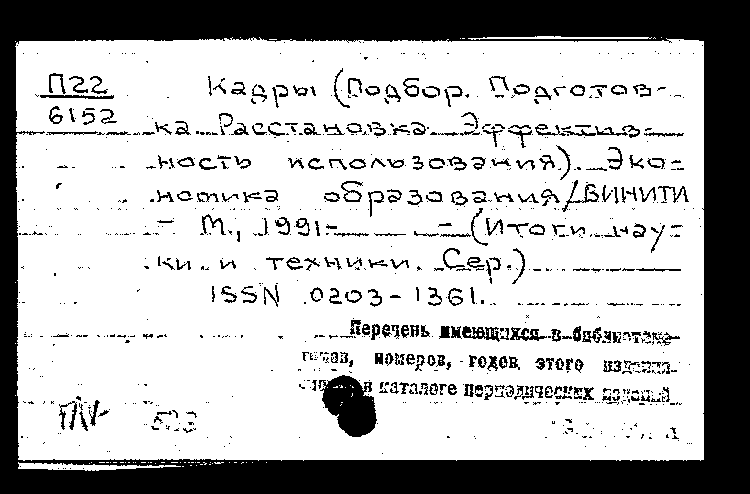 П22
6152
Кадры (Подбор. Подготов-
ка. Расстановка. Эффектив-
ность использования). Эко-
номика образования/ВИНИТИ
- М., 1991- - (Итоги нау-
ки и техники. Сер.)
ISSN 0203-1361.
Перечень имеющихся в библиотеке
томов, номеров, годов этого издания
в каталоге периодических изданий
523